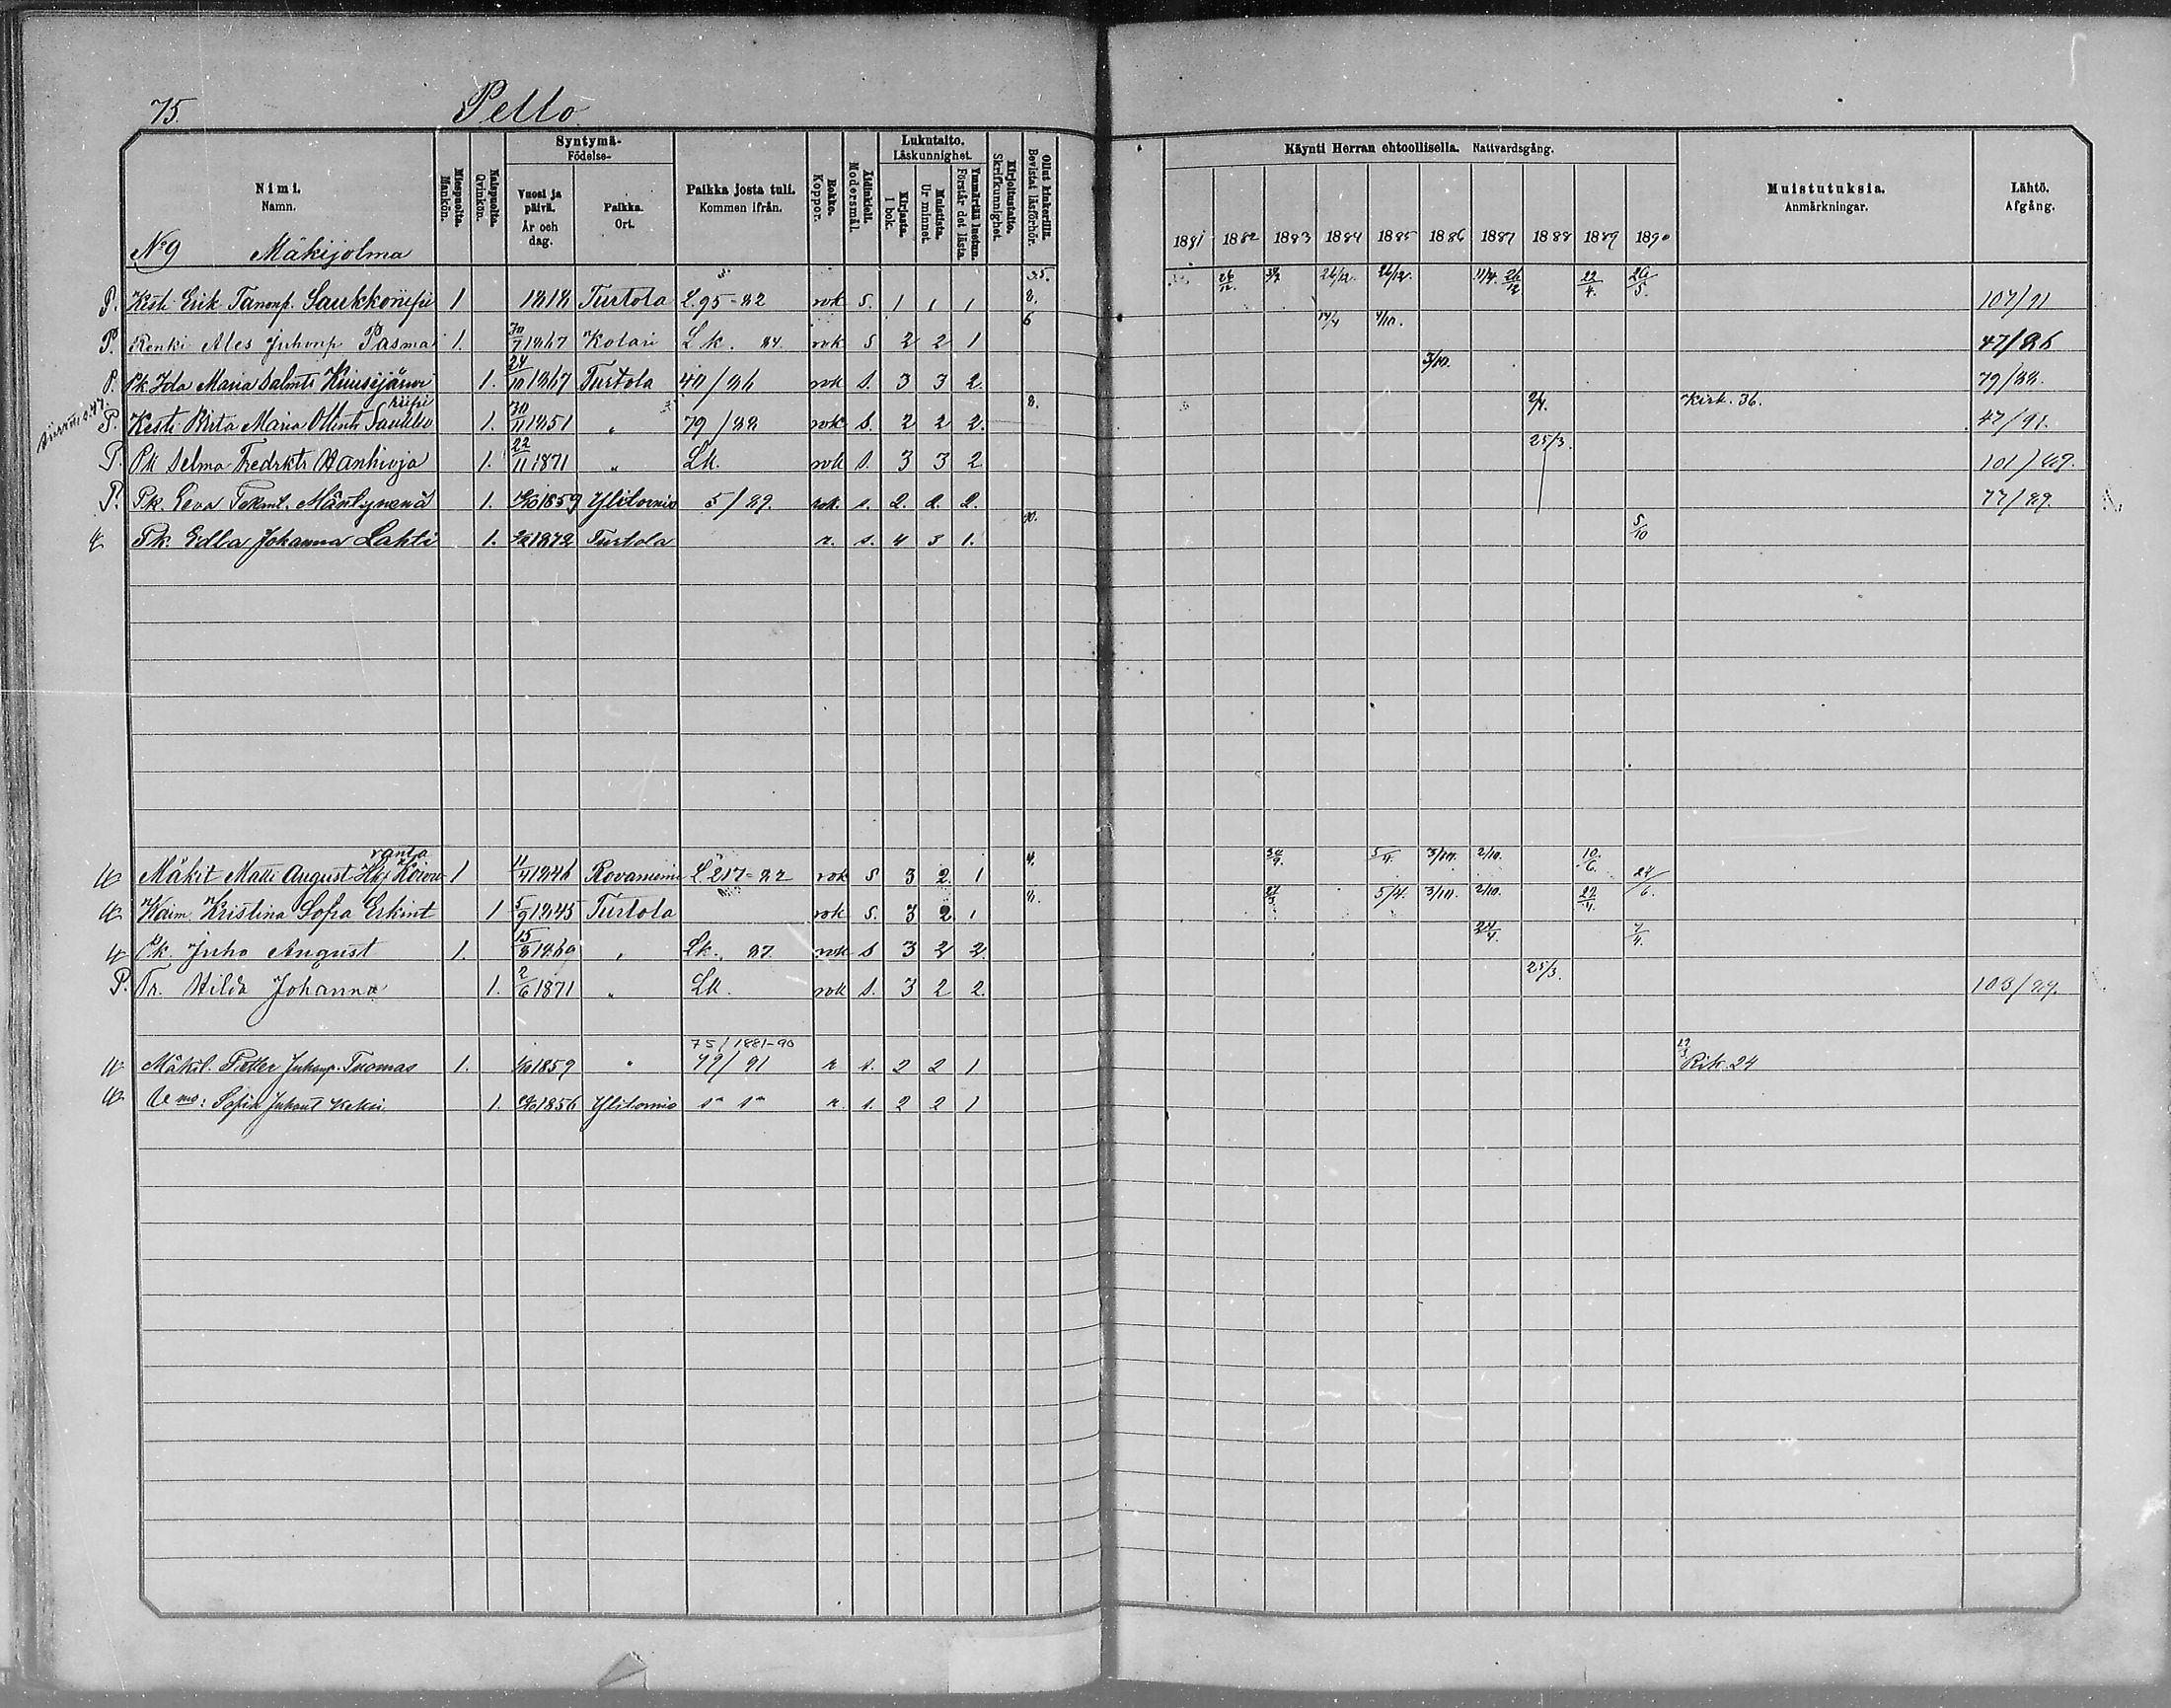 75. Pello
Nimi. Namn.
Miespuolta. Mankön.
Naispuolta. Qvinkön.
Syntymä- Födelse-
Vuosi ja päivä. År och dag.
Paikka. Ort.
Paikka josta tuli. Kommen ifrån.
Rokko. Koppor.
Äidinkieli. Modersmål.
Lukutaito. Läskunnighet.
Kirjasta. I bok.
Muistista. Ur minnet.
Ymmärtää luetun. Förstår det lästa.
Kirjoitustaito. Skrifkunnighet.
Ollut kinkerillä. Bevistat läsförhör.
Käynti Herran ehtoollisella. Nattvardsgång.
1881 1882 1883 1884 1885 1886 1887 1888 1889 1890
Muistutuksia. Anmärkningar.
Lähtö. Afgång.
No 9 Mäkijolma
P. Kesti Erik Tanonp. Saukkoriipi 1 1818 Turtola L. 95-82 rok s. 1 1 1 26/12. 26/12. 26/12. 11/4. 26/12 22/4. 107/91
P. Renki Ales Juhonp Pasma 1. 30/7 1867 Kolari Lk. 84. rok s 2 2 1 6 14/4 4/10. 47/86
P. Pk Ida Maria Salmti Kuusijärvi 1. 24/10 1867 Turtola 40/86 rok s. 3 3 2 3/10. 79/88.
P. Kesti Brita Maria Ollint Saukkoriipi 1. 30/11 1851 " 79/88 rok s. 2 2 2. 8. Kirk. 36. 47/91.
P. Pk Selma Fredrkts Wanhioja 1. 22/11 1871 " Lk. rok s. 3 3 2 25/3. 101/89.
P. Pk. Eeva Mäntymenä 1. 1859 Ylitornio 5/89. rok. s. 2. 2. 2. 77/89.
Pk. Edla Johanna Lahti 1. 1872 Turtola r. s. 4 3 1. 5/10
Mäkit Matti August Koivuranta 1 11/4 1846 Rovaniemi L. 217-82 rok s 3 2 1 4. 30/9. 3/10. 2/10. 10/6. 24/6.
Waim. Kristina Sofia Erkint 1 5/9 1845 Turtola rok s. 3 2 1 5/4. 3/10. 2/10. 22/4.
Pk. Juho August 1. 15/8 1869 " Lk. 87. rok s 3 2 2 24/4.
P. Tr. Hilda Johanna 1. 2/6 1871 " Lk. rok s. 3 2 2. 25/3. 103/89.
75/1881-90
Mäkil. Petter Juhonp. Tuomas 1. 1859 " 79/91 r s. 2 2 1 Rik. 24
Vmo: Sofia Juhont Keksi 1. 1856 Ylitornio s" s" r. s. 2 2 1